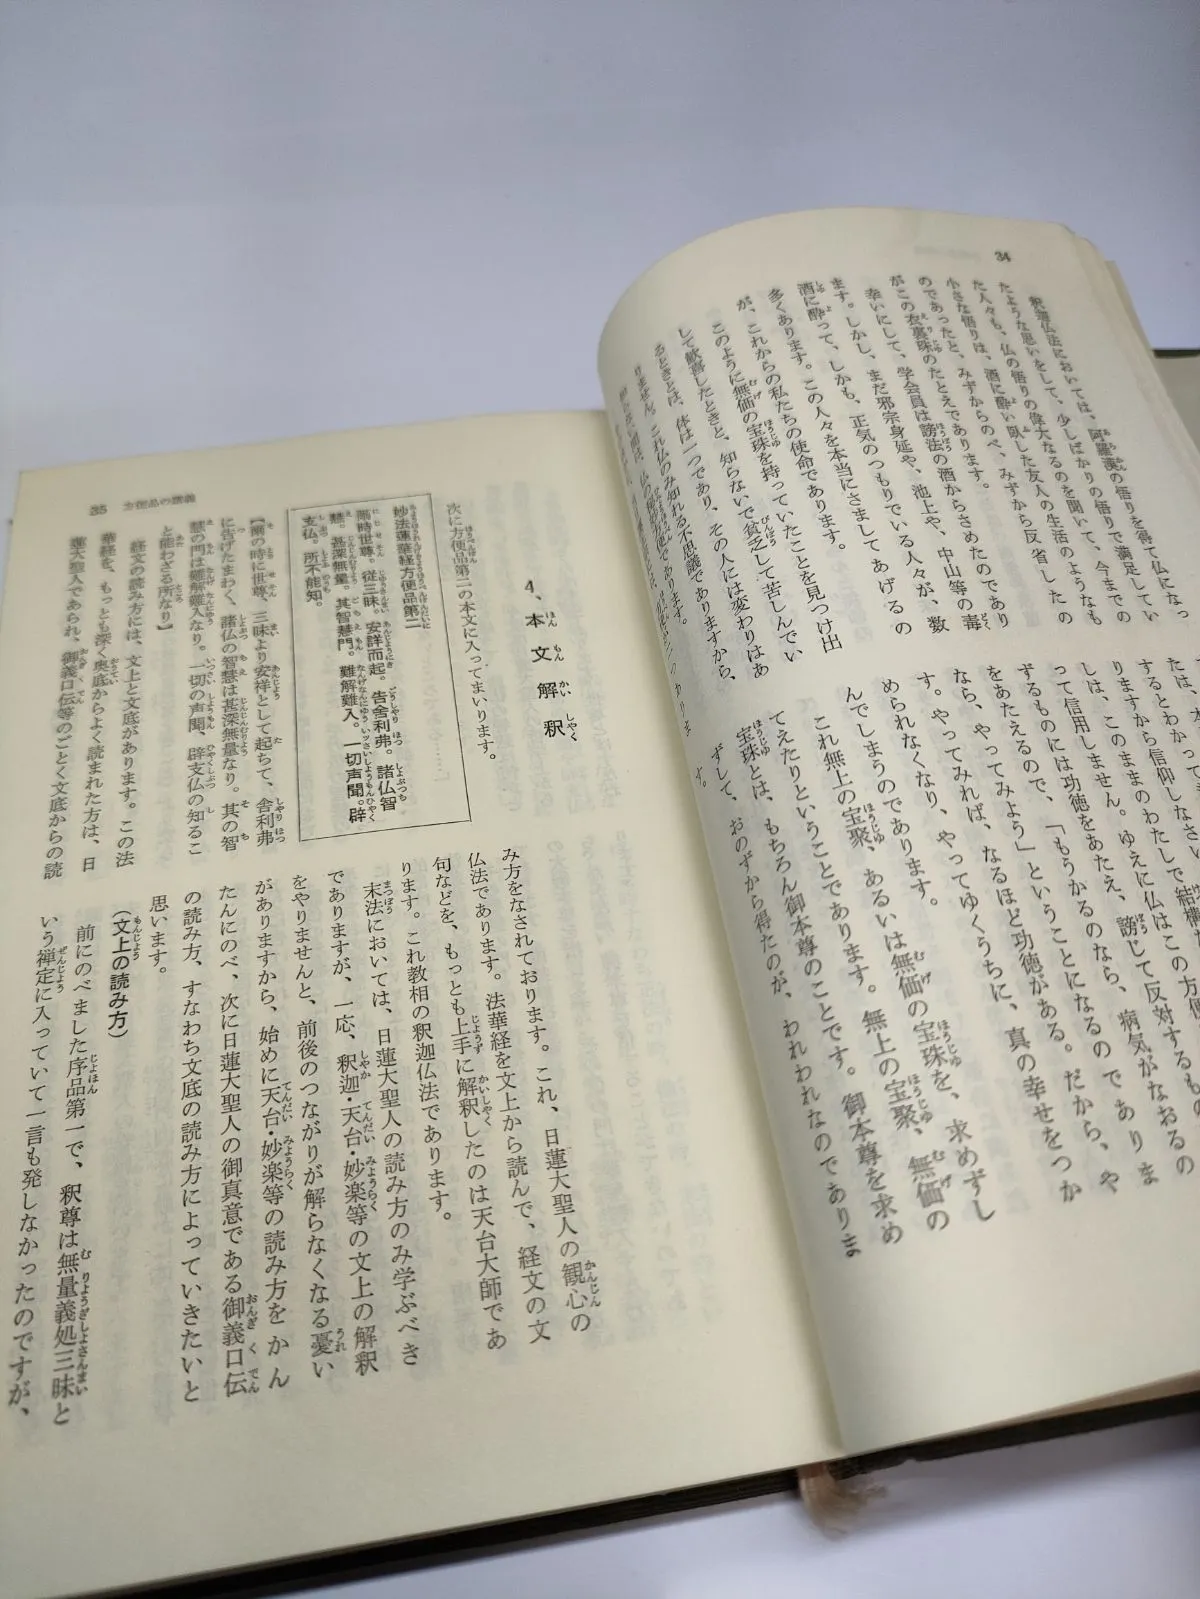 34
釈迦仏法においては、阿羅漢の悟りを得て仏になっ
たような思いをして、少しばかりの悟りで満足してい
た人々も、仏の悟りの偉大なるのを聞いて、今までの
小さな悟りは、酒に酔い臥した友人の生活のようなも
のであったと、みずからのべ、みずから反省したの
がこの衣裏珠のたとえであります。
幸いにして、学会員は謗法の酒からさめたのであり
ます。しかし、まだ邪宗身延や、池上や、中山等の毒
酒に酔って、しかも、正気のつもりでいる人々が、数
多くあります。この人々を本当にさましてあげるの
が、これからの私たちの使命であります。
このように無価の宝珠を持っていたことを見つけ出
して歓喜したときと、知らないで貧乏して苦しんでい
るときとは、体は一つであり、その人には変わりはあ
りません。これ仏のみ知れる不思議でありますから、
するとわかって
りますから信仰しなさい
しは、このままのわたしで結構
って信用しません。ゆえに仏はこの方便
ずるものには功徳をあたえ、謗じて反対するもの
をあたえるので、「もうかるのなら、病気がなおるの
なら、やってみよう」ということになるのでありま
す。やってみれば、なるほど功徳がある。だから、や
められなくなり、やってゆくうちに、真の幸せをつか
んでしまうのであります。
これ無上の宝聚、あるいは無価の宝珠を、求めずし
てえたりということであります。無上の宝聚、無価の
宝珠とは、もちろん御本尊のことです。御本尊を求め
ずして、おのずから得たのが、われわれなのでありま
す。
35 方便品の講義
4、本文解釈
次に方便品第二の本文に入ってまいります。
妙法蓮華経方便品第二
爾時世尊。従三昧。安詳而起。告舎利弗。諸仏智
慧。甚深無量。其智慧門。難解難入。一切声聞。辟
支仏。所不能知。
【爾の時に世尊、三昧より安祥として起ちて、舎利弗
に告げたまわく、諸仏の智慧は甚深無量なり。其の智
慧の門は難解難入なり。一切の声聞、辟支仏の知るこ
と能わざる所なり】
経文の読み方には、文上と文底があります。この法
華経を、もっとも深く奥底からよく読まれた方は、日
蓮大聖人であられ、御義口伝等のごとく文底からの読
み方をなされております。これ、日蓮大聖人の観心の
仏法であります。法華経を文上から読んで、経文の文
句などを、もっとも上手に解釈したのは天台大師であ
ります。これ教相の釈迦仏法であります。
末法においては、日蓮大聖人の読み方のみ学ぶべき
でありますが、一応、釈迦・天台・妙楽等の文上の解釈
をやりませんと、前後のつながりが解らなくなる憂い
がありますから、始めに天台・妙楽等の読み方をかん
たんにのべ、次に日蓮大聖人の御真意である御義口伝
の読み方、すなわち文底の読み方によっていきたいと
思います。
（文上の読み方）
前にのべました序品第一で、釈尊は無量義処三昧と
いう禅定に入っていて一言も発しなかったのですが、